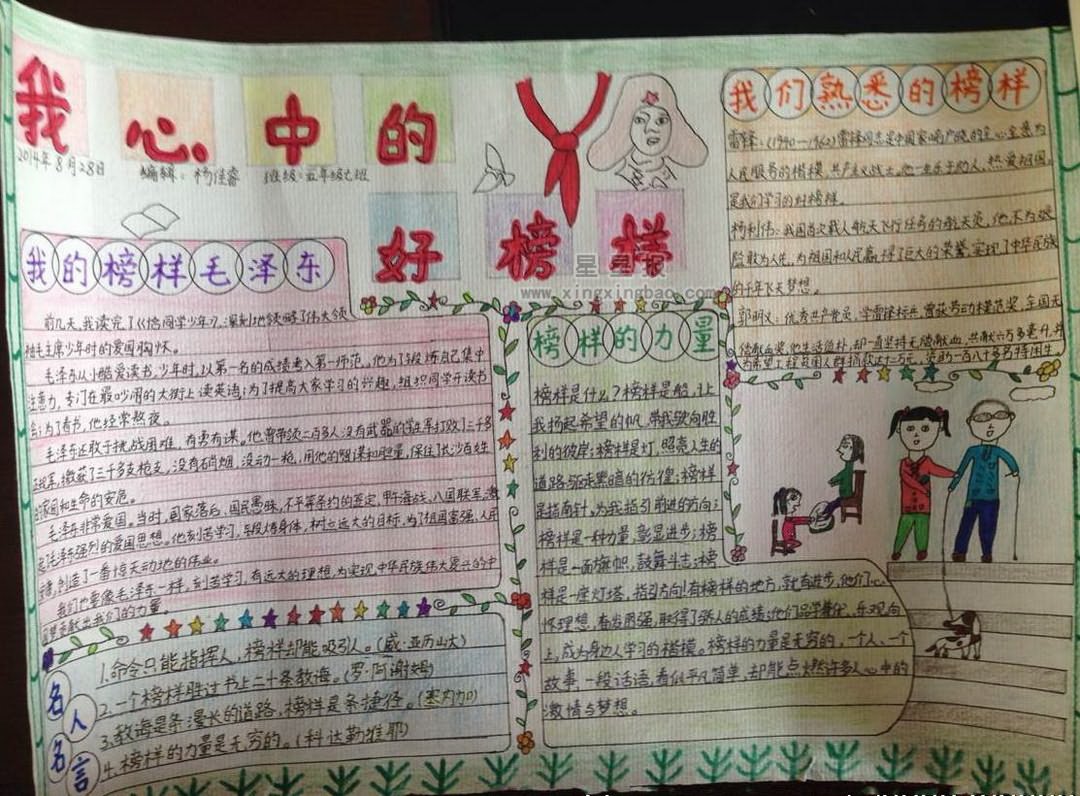 我心中的
2014年8月28日
编辑：杨佳睿 班级：五年级七班
好榜样
星星报
www.xingxingbao.com
我的榜样毛泽东
前几天，我读完了《恰同学少年》，深刻地领略了伟大领
袖毛主席少年时的爱国胸怀。
毛泽东从小酷爱读书，少年时，以第一名的成绩考入第一师范，他为了锻炼自己集中
注意力，专门在最吵闹的大街上读英语；为了提高大家学习的兴趣，组织同学开读书
会；为了看书，他经常熬夜。
毛泽东还敢于挑战困难，有勇有谋。他曾带领二百多人没有武器的学生军打败了三千多
缴获了三千多支枪支，没有硝烟，没动一枪，用他的智谋和胆量，保住了长沙百姓
的家园和生命的安危。
毛泽东非常爱国。当时，国家落后，国民愚昧，不平等条约的签定，甲午海战，八国联军，激
起毛泽东强烈的爱国思想。他刻苦学习，锻炼身体，树立远大的目标，为了祖国富强、人民
创造了一番惊天动地的伟业。
我们也要像毛泽东一样，刻苦学习，有远大的理想，为实现中华民族伟大复兴的中
国梦贡献出我们的力量。
名人名言
1.命令只能指挥人，榜样却能吸引人。（威·亚历山大）
2.一个榜样胜过书上二十条教诲。（罗·阿谢姆）
3.教诲是条漫长的道路，榜样是条捷径。（塞内加）
4.榜样的力量是无穷的。（科达勒维耶）
榜样的力量
榜样是什么？榜样是船，让
我扬起希望的帆，带我驶向胜
利的彼岸；榜样是灯，照亮人生的
道路，驱走黑暗的彷徨；榜样
是指南针，为我指引前进的方向；
榜样是一种力量，彰显进步；榜
样是一面旗帜，鼓舞斗志；榜
样是一座灯塔，指引方向！有榜样的地方，就有进步，他们心
怀理想，奋发图强，取得了骄人的成绩；他们品学兼优、乐观向
上，成为身边人学习的楷模。榜样的力量是无穷的，一个人、一个
故事、一段话语，看似平凡简单，却能点燃许多人心中的
激情与梦想。
我们熟悉的榜样
雷锋：(1940—1962)雷锋同志是全国家喻户晓的全心全意为
人民服务的楷模，共产主义战士，他一生乐于助人，热爱祖国，
是我们学习的好榜样。
杨利伟：我国首次载人航天飞行任务的航天员，他不为艰
险敢为人先，为祖国和人民赢得了巨大的荣誉，实现了中华民族
的千年飞天梦想。
郭明义：优秀共产党员，学雷锋标兵，曾获劳动模范奖，全国无
偿献血奖，他生活俭朴，却一直坚持无偿献血，共献六万多毫升，并
为希望工程、贫困人群捐款达七万元，资助一百八十多名特困生